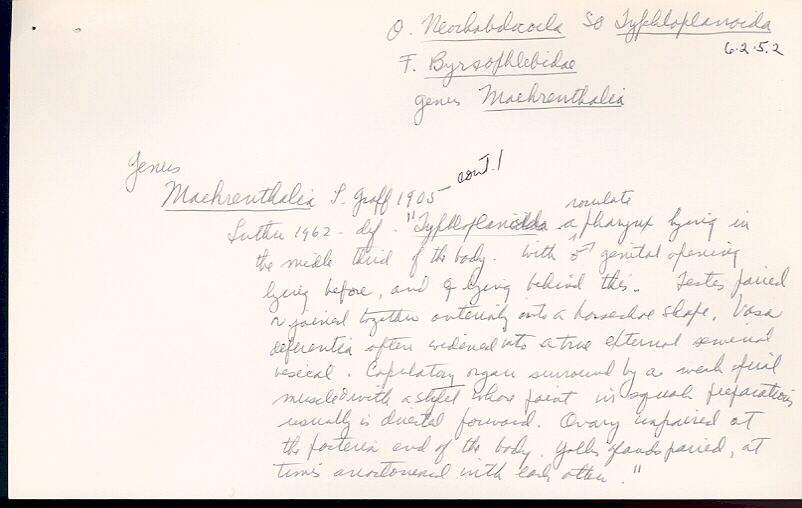 O. Neorhabdocoela SO Typhloplanoida
6.2.5.2
F. Byrsophlebidae
genus Maehrenthalia
Genus cont. 1
Maehrenthalia S. Graff 1905
rosulate
Luther 1962 - def. "Typhloplanoida a pharynx lying in
the middle third of the body. With ♂ genital opening
lying before, and ♀ lying behind this. Testes paired
or joined together anteriorly into a horseshoe shape. Vasa
deferentia often widened into a true external seminal
vesical. Copulatory organ surround by a weak spiral
muscled with a stylet whose point in squash preparations
usually is directed forward. Ovary unpaired at
the posterior end of the body. Yolk glands paired, at
times anastomosed with each other."